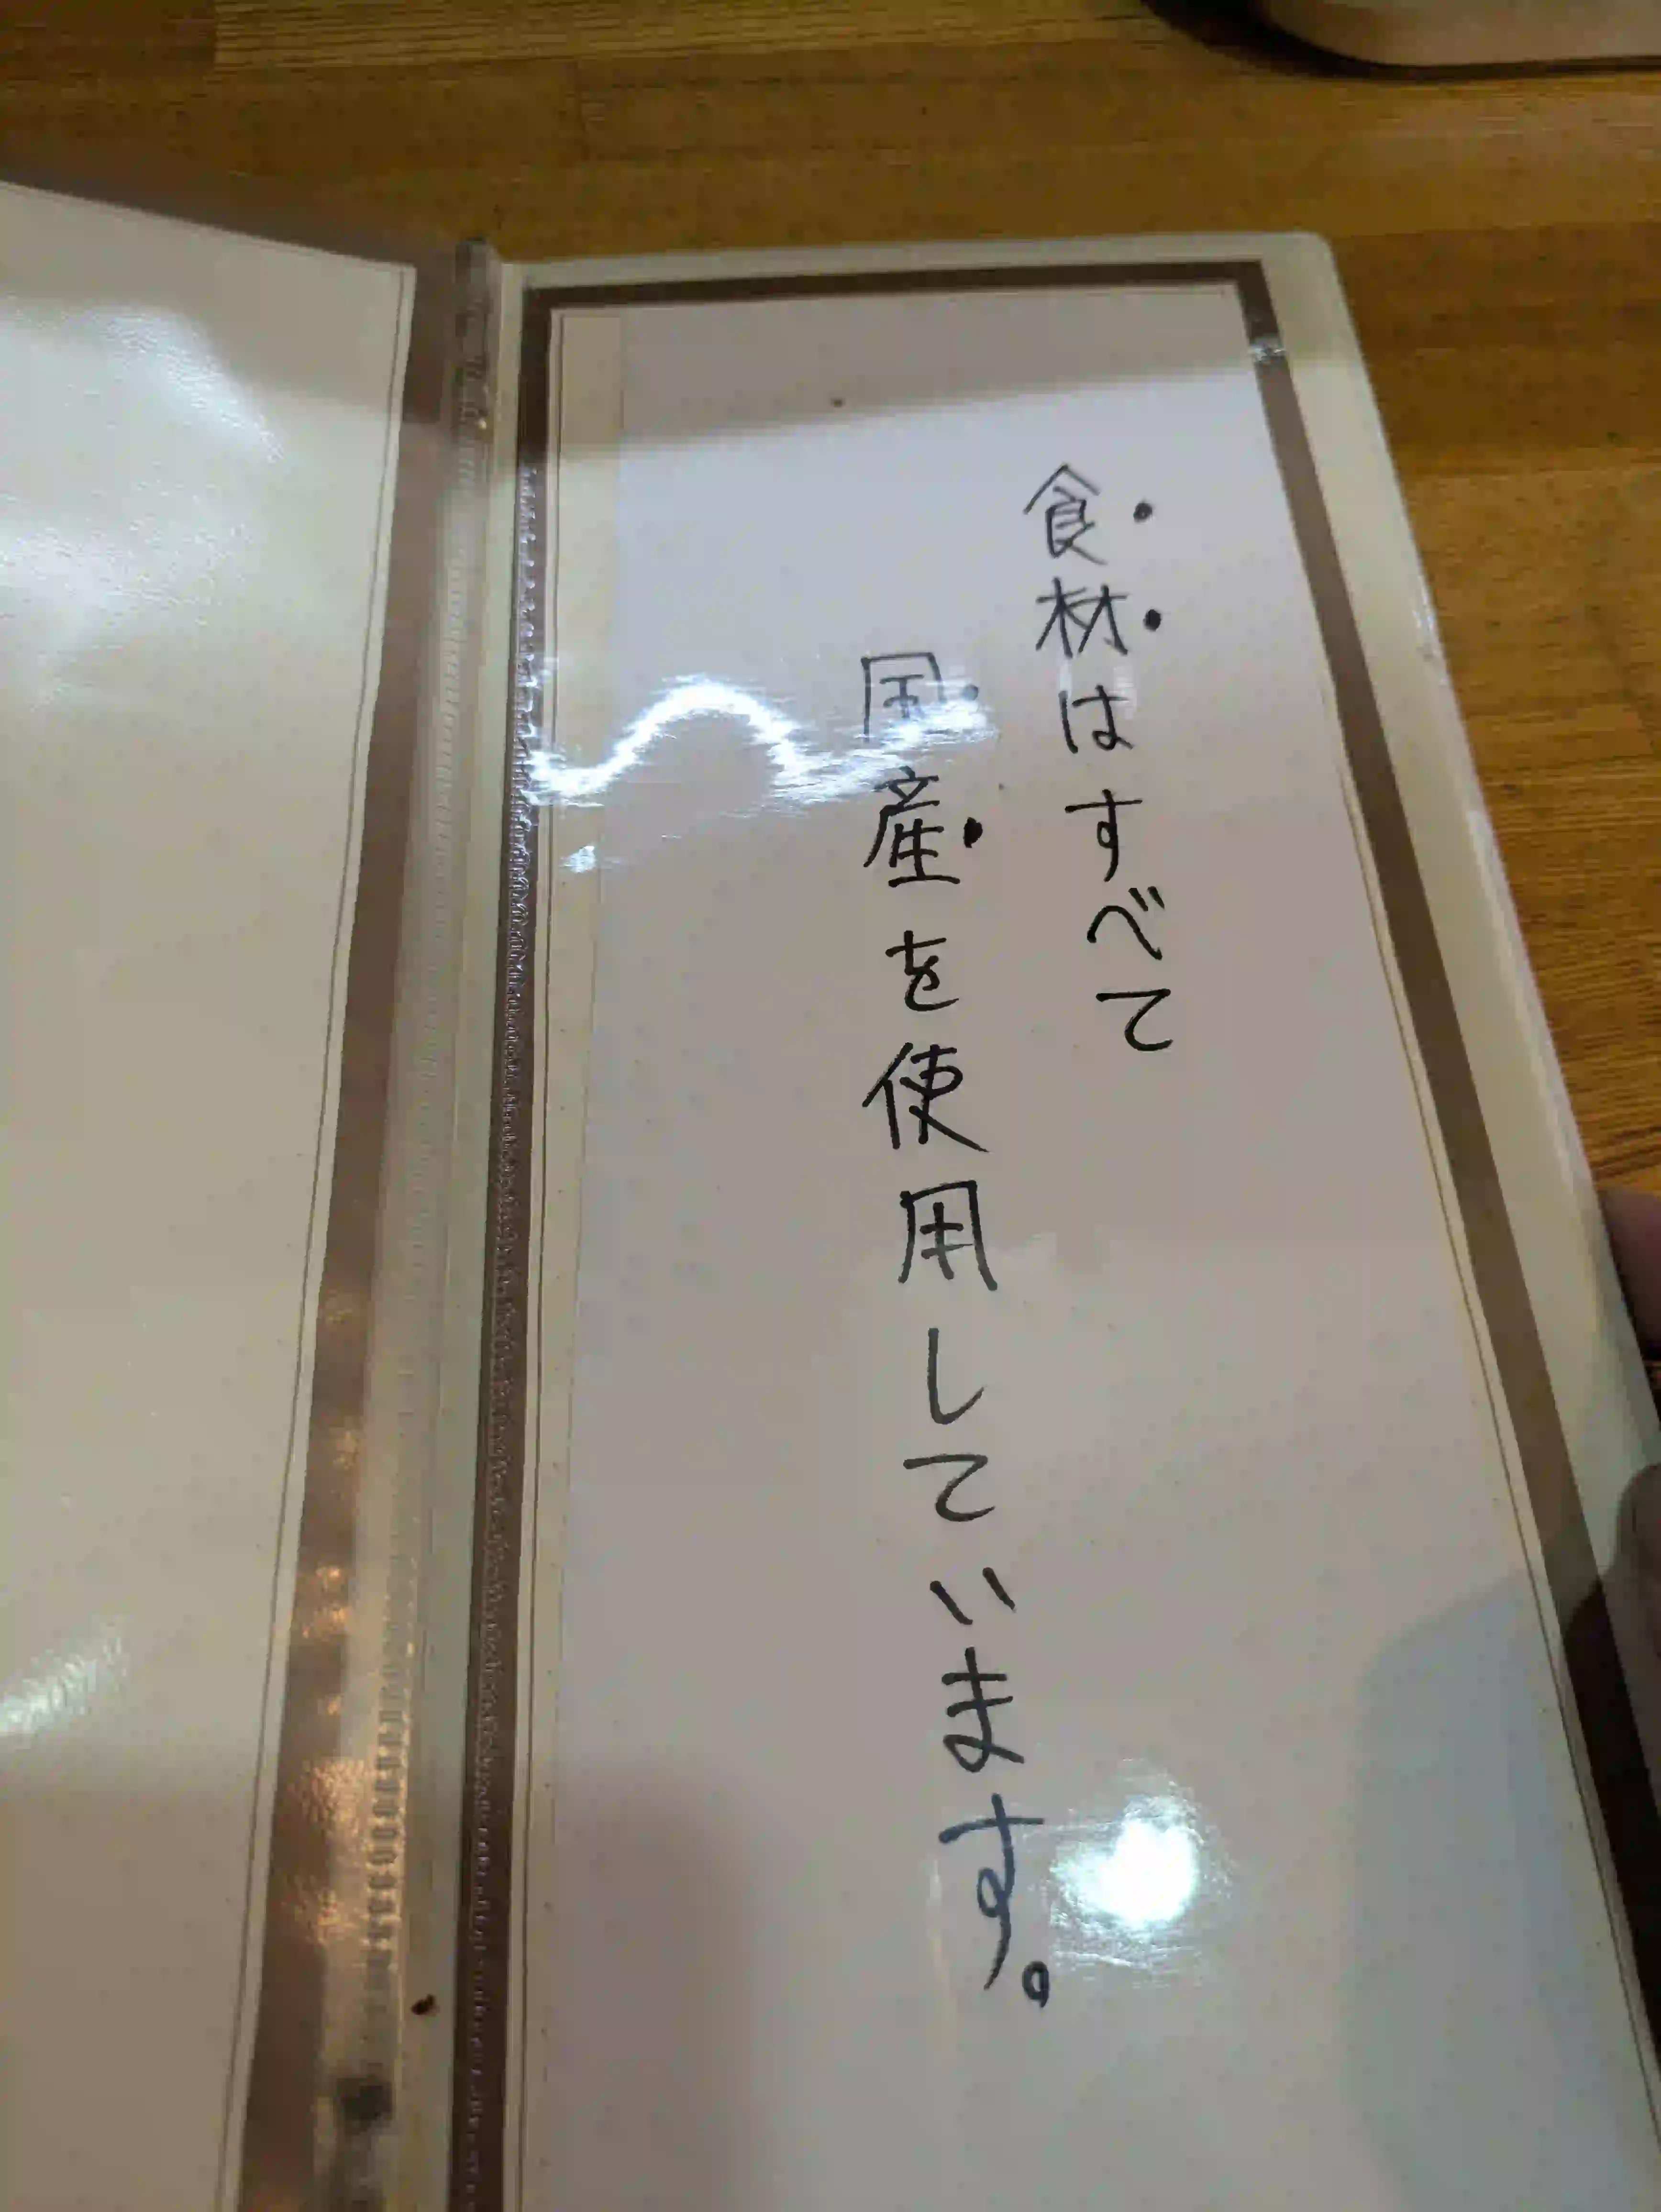 食材はすべて
国産を使用しています。